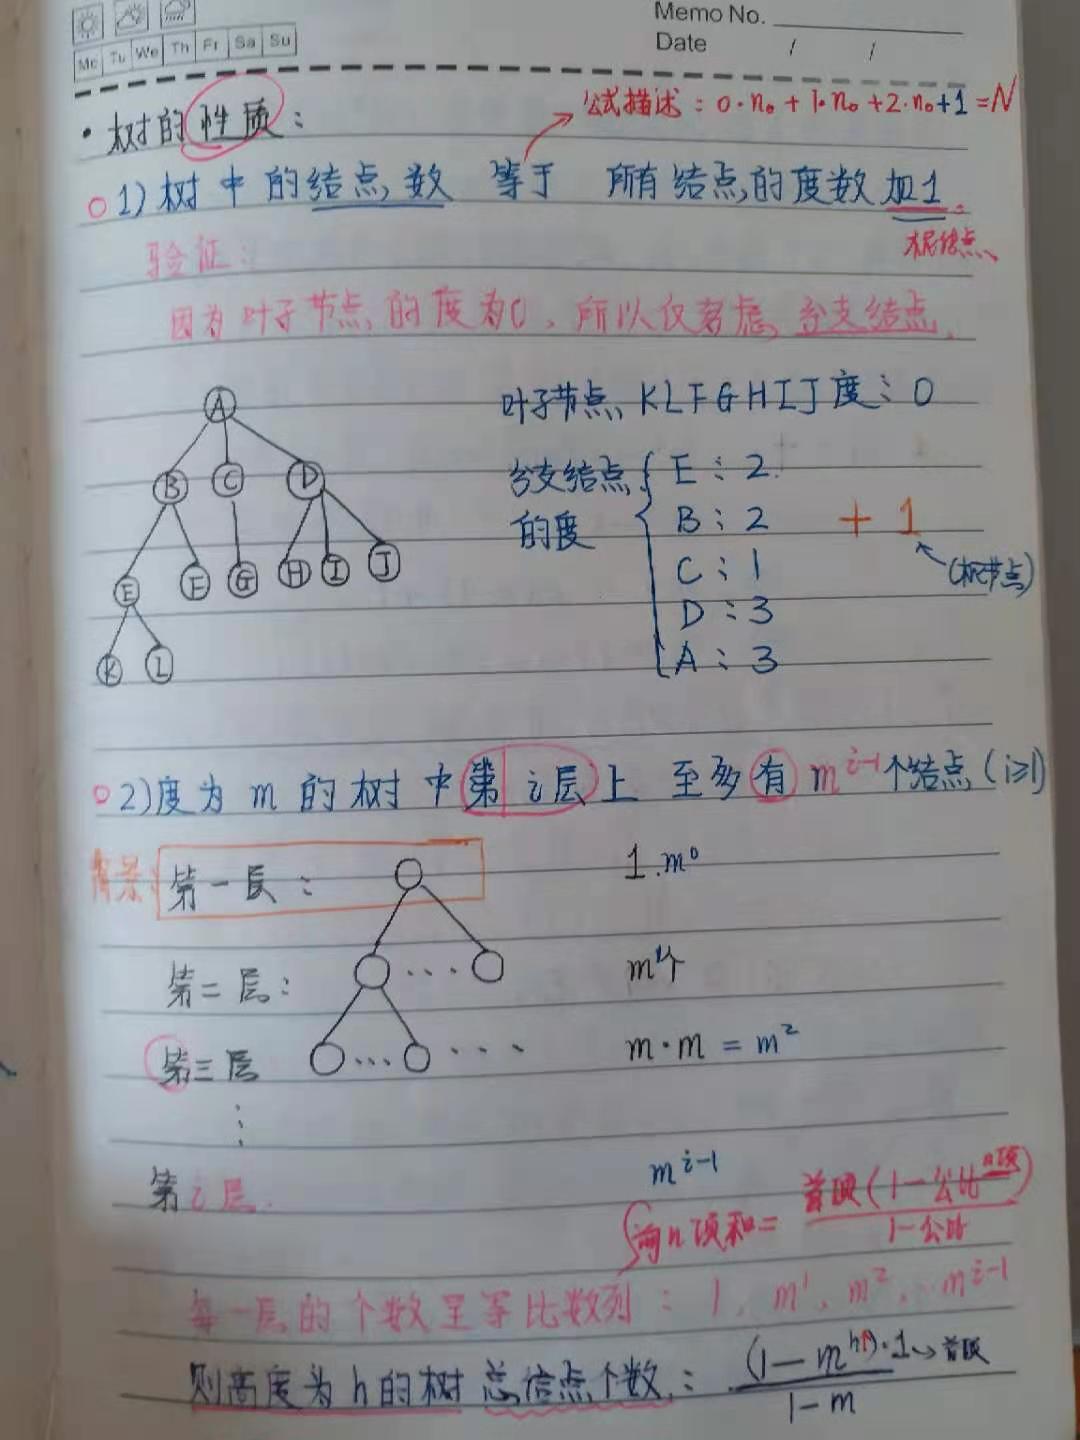 Memo No.
Mo Tu We Th Fr Sa Su
Date / /
公式描述：0·n₀ + 1·n₀ + 2·n₀ + 1 = N
· 树的性质：
1) 树中的结点数 等于 所有结点的度数加1.
根结点
验证：
因为叶子节点的度为0，所以仅考虑分支结点.
A
B C D
E F G H I J
K L
叶子节点 KLFGHIJ 度：0
分支结点的度
E：2
B：2
C：1
D：3
A：3
+ 1
(根节点)
2) 度为 m 的树中第 i 层上 至多有 mⁱ⁻¹个结点 (i≥1)
第一层： 1·m⁰
第二层： ... m¹个
第三层 ... ... m·m = m²
⋮
第 i 层. mⁱ⁻¹
前n项和 = 首项(1-公比ⁿ项)/1-公比
每一层的个数呈等比数列：1, m¹, m², … mⁱ⁻¹
则高度为 h 的树 总结点个数：(1-mʰ)·1/1-m → 首项